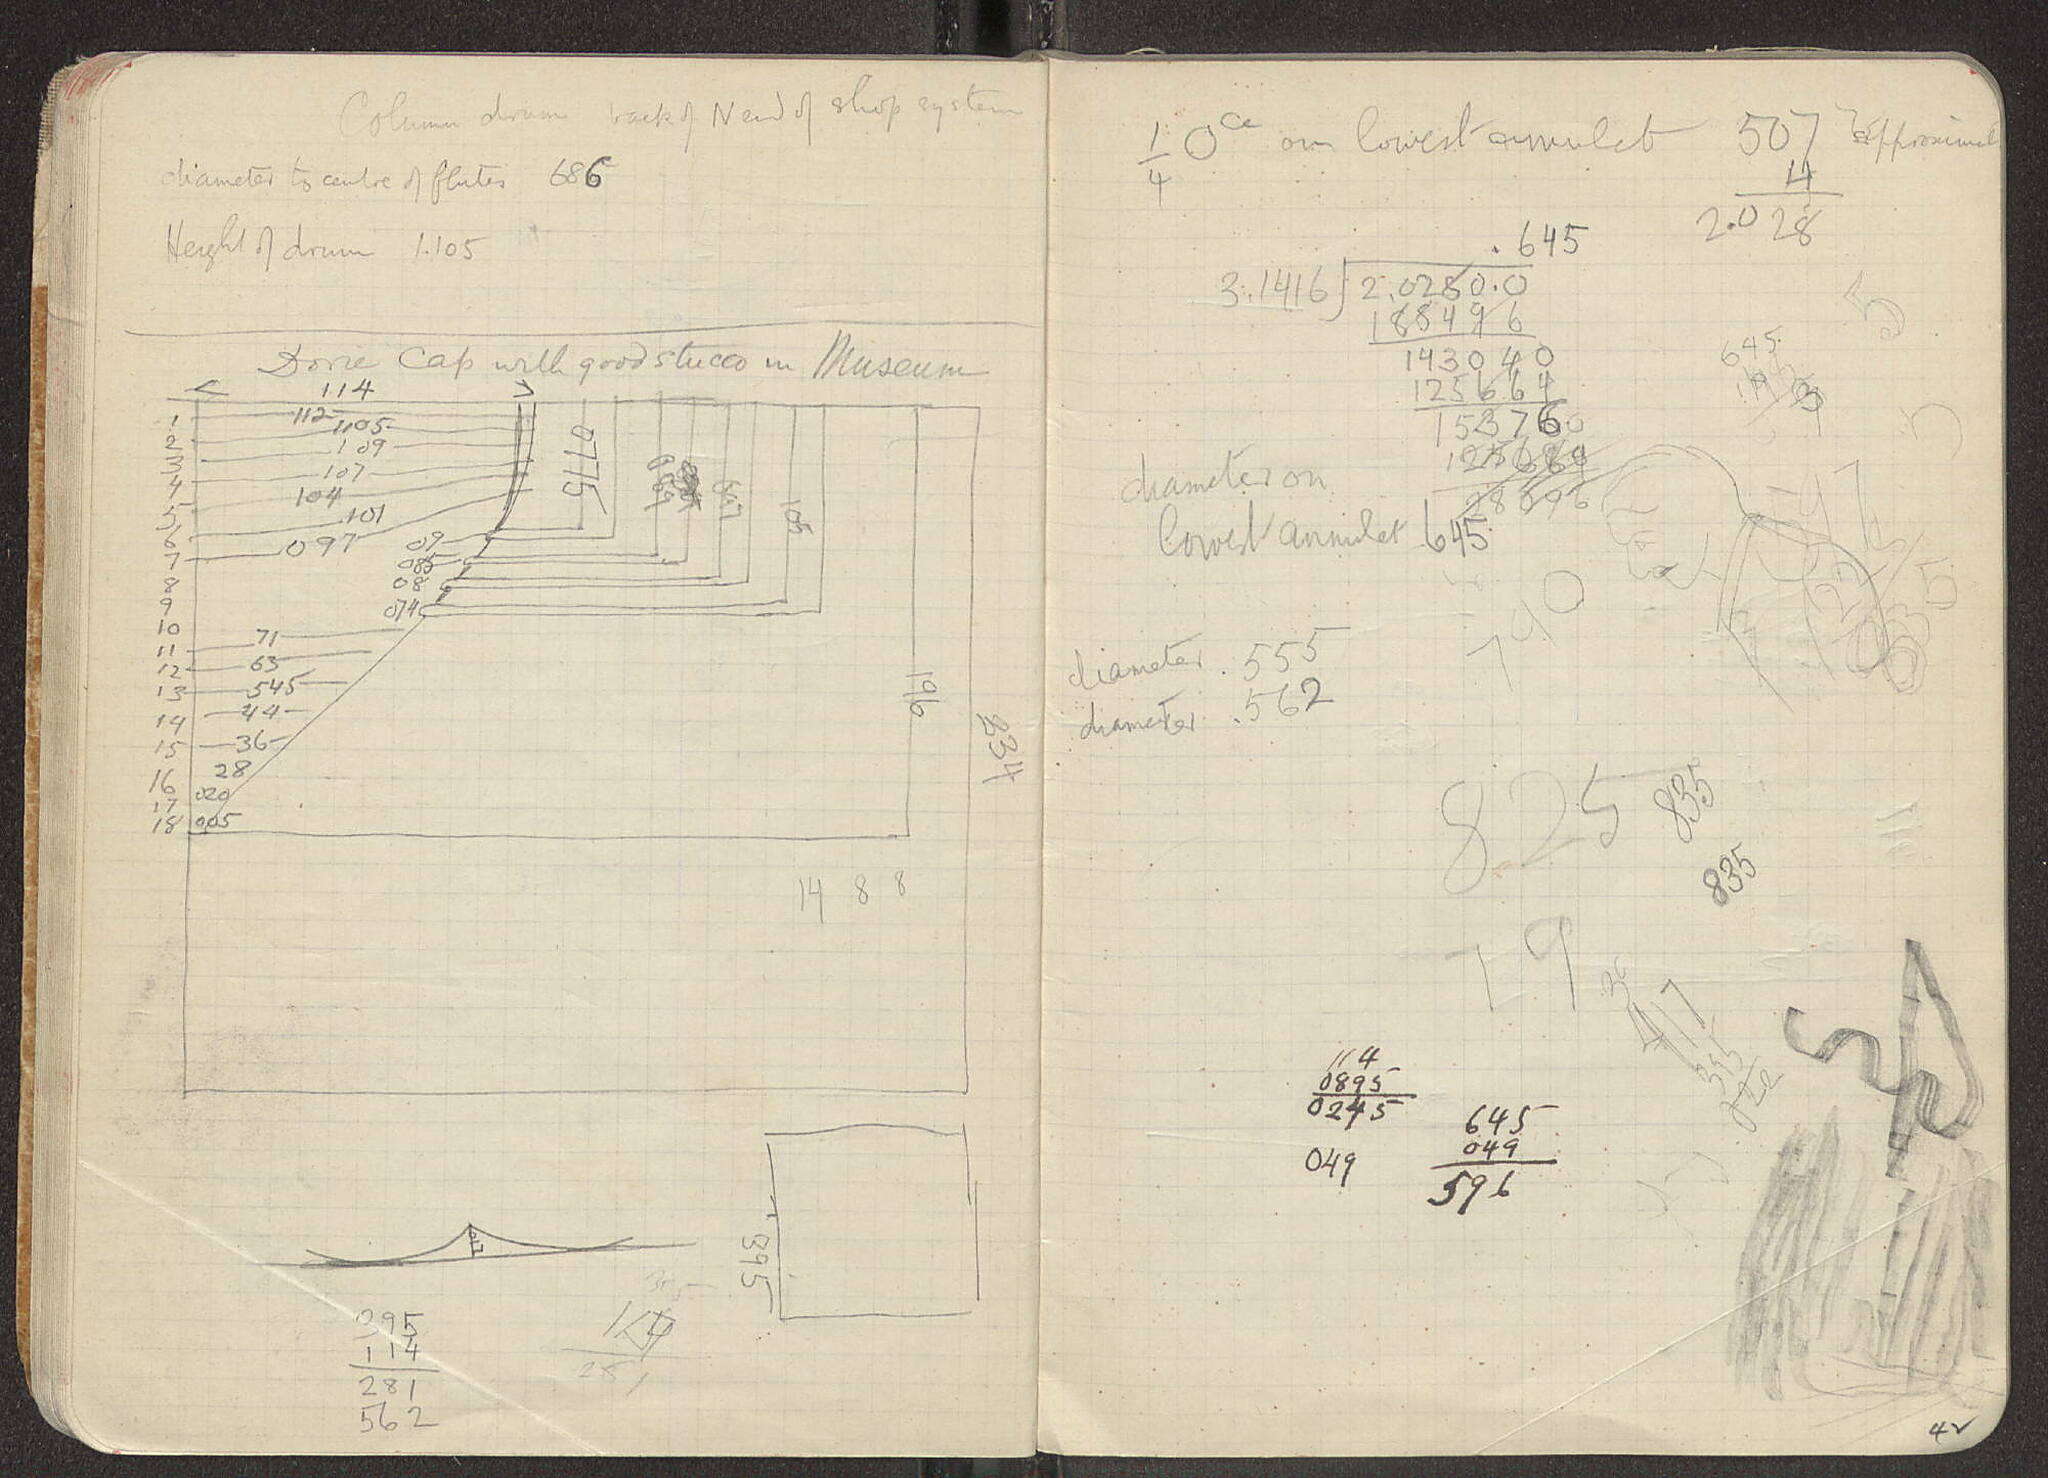 Column drum back of N end of shop system
diameter to centre of flutes 686
Height of drum 1.105
Doric Cap with good stucco in Museum
114
1 112
2 1105
3 109
4 107
5 104
6 101
7 097
09
085
8 08
9 074
10
11 71
12 63
13 545
14 44
15 36
16 28
17 020
18 005
0775
105
196
234
14 8 8
395
395
114
281
562
281
1/4 0ce on lowest annulet 507 approximate
4
2.028
.645
3.1416 2.0280.0
188496
143040
125664
153760
28096
645
diameter on
lowest annulet 645
790
diameter .555
diameter .562
825
835
835
79
114
0895
0245
049
645
049
596
42